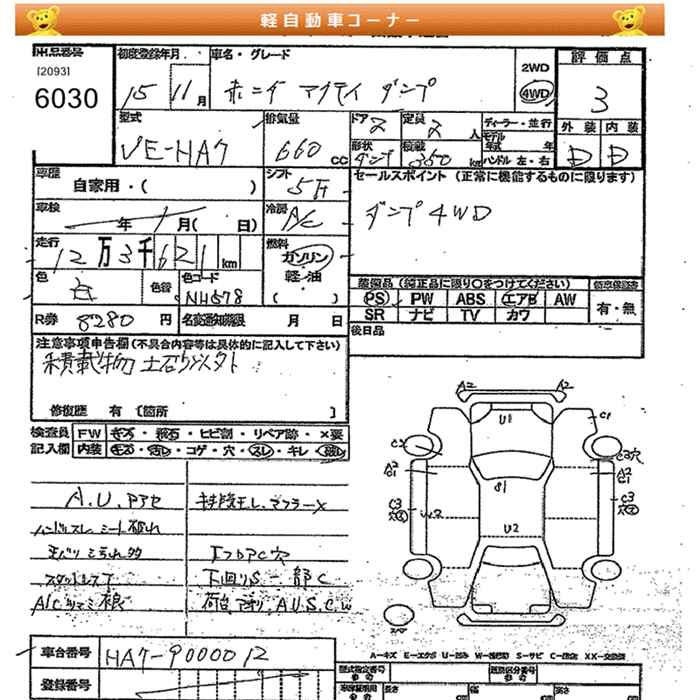 軽自動車コーナー
[2093]
6030
初度登録年月
15 11月
車名・グレード
ホンダ アクティ ダンプ
2WD
4WD
評価点
3
外装 内装
D D
型式
VE-HA7
排気量
660 cc
ドア 2
定員 2人
形状 ダンプ
積載 350 kg
ディーラー・並行
モデル年式 年
ハンドル 左・右
車歴
自家用・( )
シフト
5F
セールスポイント (正常に機能するものに限ります)
ダンプ 4WD
車検
年 月( 日)
冷房
A/C
走行
12万3千621km
燃料
ガソリン
軽・油
( )
色
白
色替
色コード
NH578
装備品(純正品に限り○をつけてください)
PS PW ABS エアB AW
SR ナビ TV カワ
有・無
R券 8280 円
名変通知期限 月 日
後日品
注意事項申告欄(不具合内容等は具体的に記入して下さい)
積載物 土石
修復歴 有 [箇所 ]
検査員記入欄
FW キズ・飛石・ヒビ割・リペア跡・×要
内装 キズ・汚レ・コゲ・穴・スレ・キレ・破レ
A.U.Pアセ
マフラーX
ハンドルスレ シート破れ
エプロンAC穴
スタットレス
下回りS 一部C
A/Cツマミ
荷台 A.U.S.C.W
A2 A2
U1
C1
C2
C3穴
A2
C1
A2
C1
S1
C3
C3
U2
スペア
A-キズ E-エクボ U-凹み W-補修跡 S-サビ C-腐食 XX-交換済
車台番号
HA7-9000012
登録番号
型式指定番号
参考
類別区分番号
参考
長さ 幅 高さ